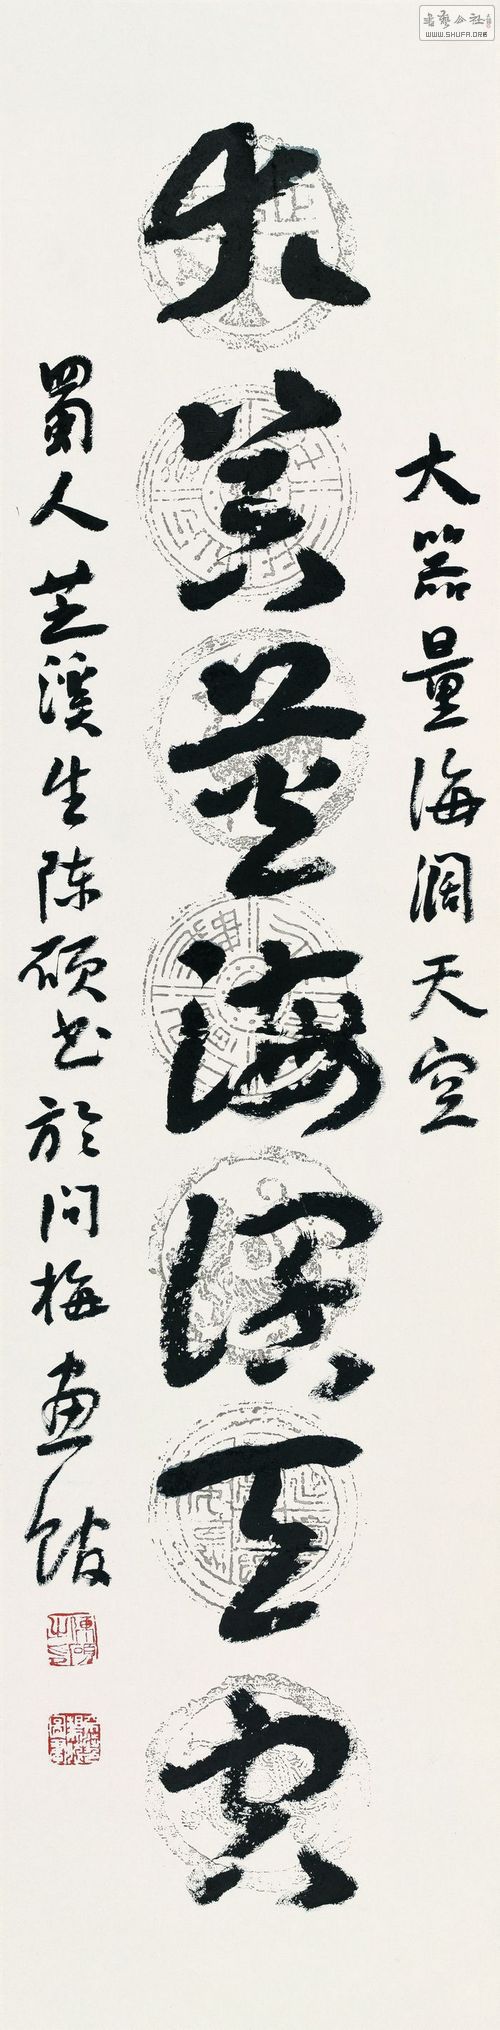 大器量海阔天空
大器量海阔天空
蜀人芝溪生陈硕书於问梅画馆
WWW.SHUFA.ORG